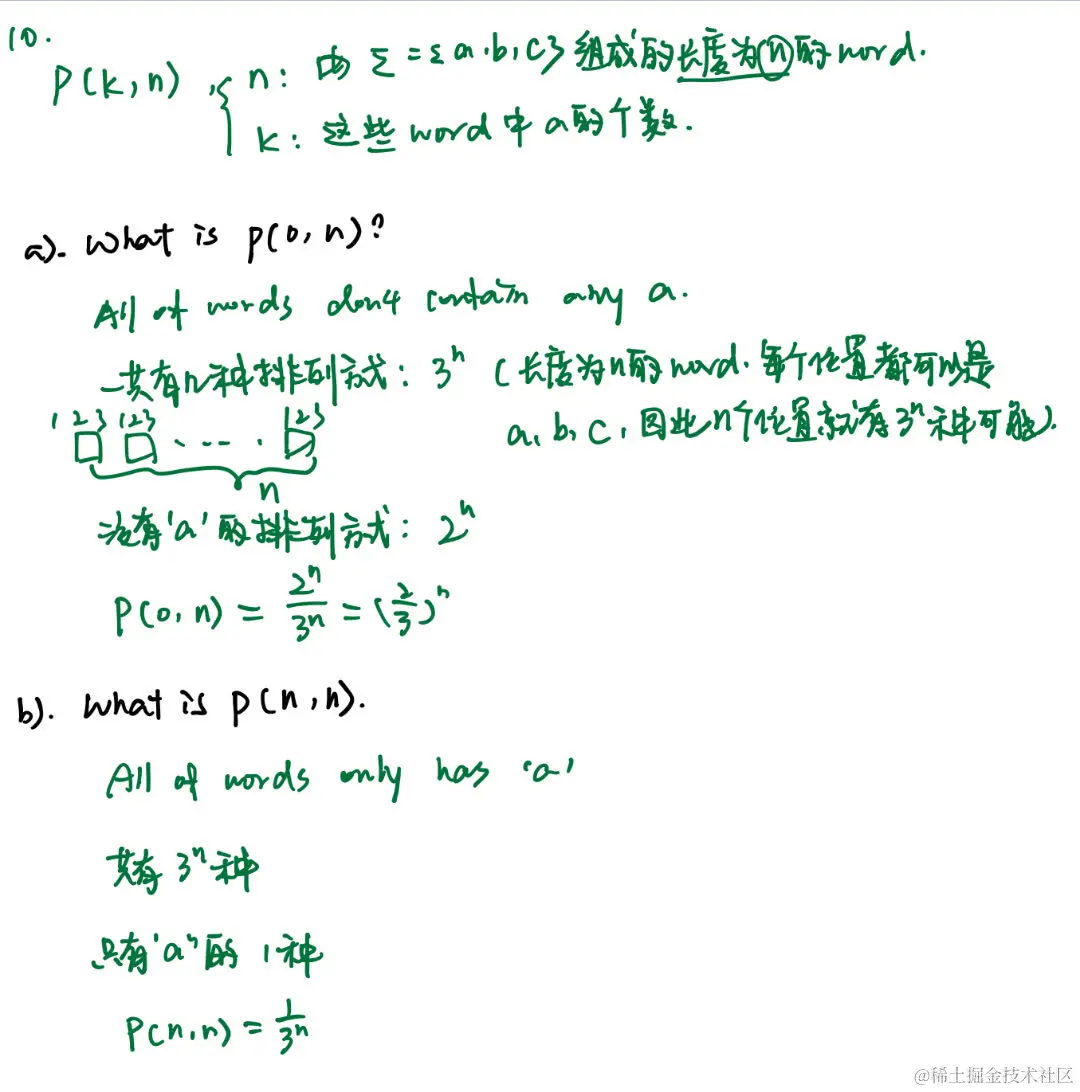 10.
P(k,n) { n: 由 Σ = {a,b,c} 组成的长度为n的word.
k: 这些word中a的个数.
a). What is p(0,n)?
All of words don't contain any a.
一共有n种排列方式: 3ⁿ (长度为n的word. 每个位置都可以是
a, b, c, 因此n个位置就有3ⁿ种可能).
1 2 3 1 2 3 . --- . 1 2 3
n
没有'a'的排列方式: 2ⁿ
P(0,n) = 2ⁿ/3ⁿ = (2/3)ⁿ
b). What is p(n,n).
All of words only has 'a'
共有 3ⁿ种
只有'a'的 1种
P(n,n) = 1/3ⁿ
@稀土掘金技术社区